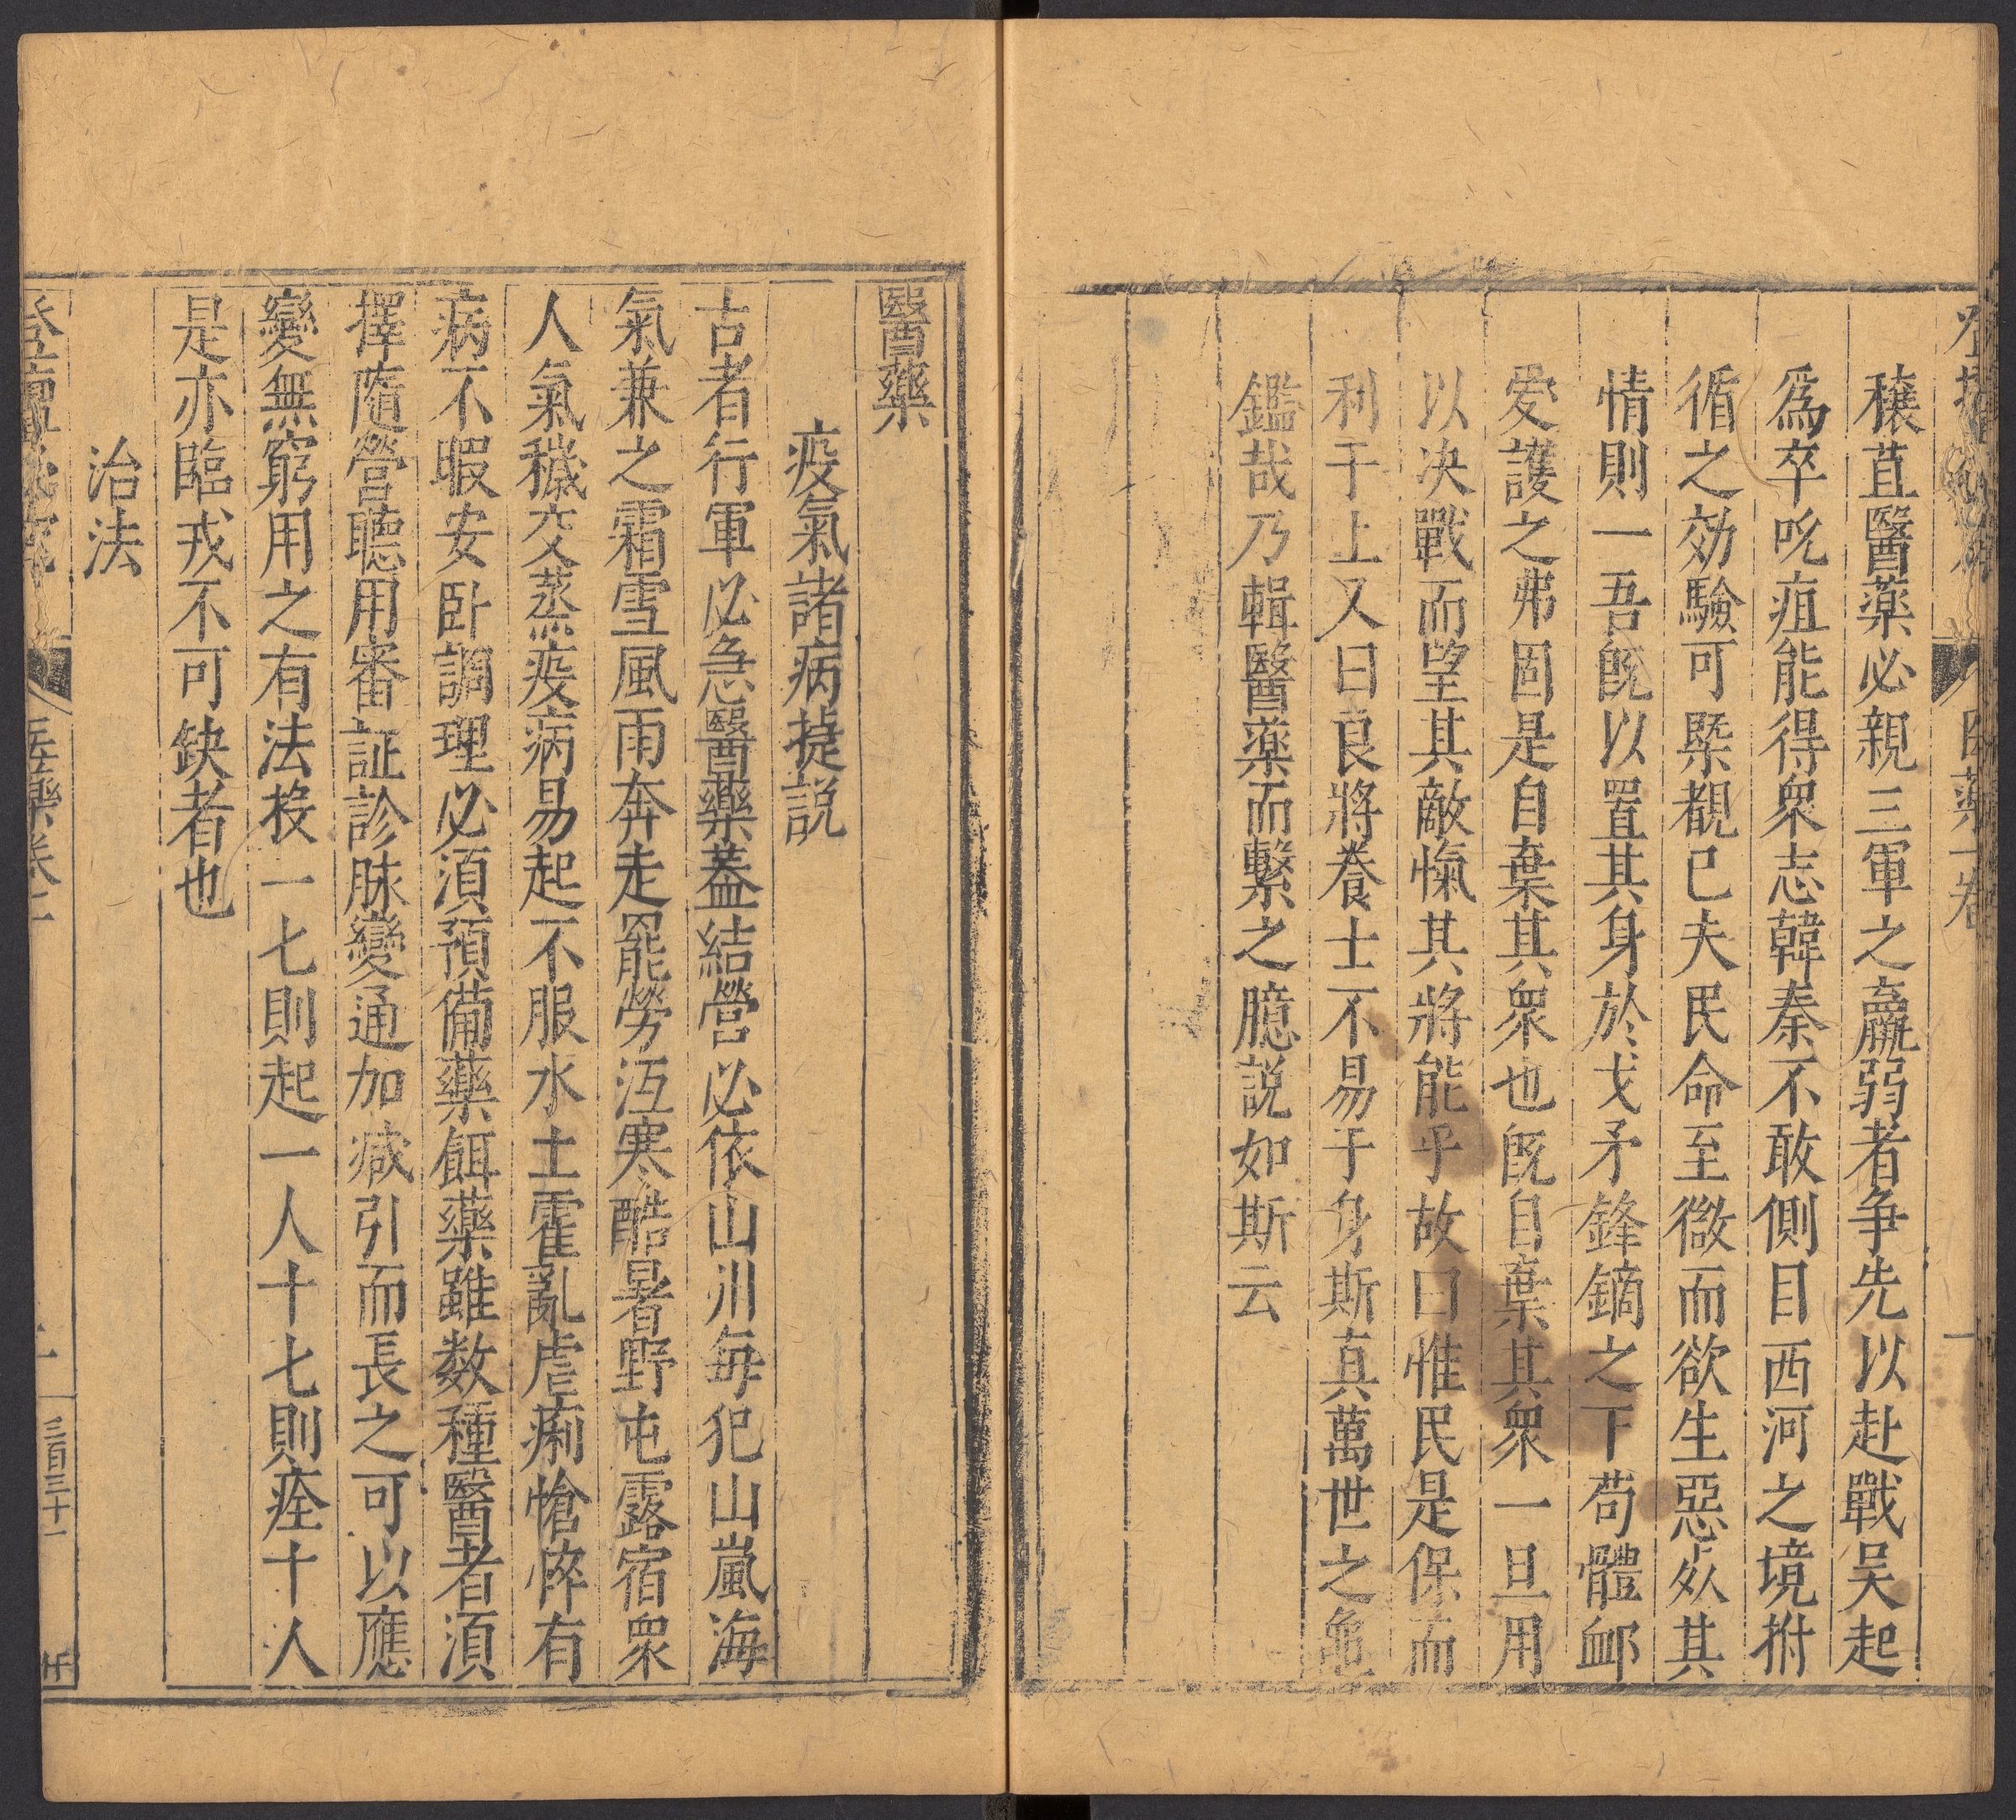 穰苴醫藥必親三軍之羸弱者争先以赴戰吳起
爲卒吮疽能得衆志韓秦不敢側目西河之境拊
循之効驗可槩覩已夫民命至微而欲生惡死其
情則一吾旣以置其身於戈矛鋒鏑之下苟體卹
愛護之弗固是自棄其衆也旣自棄其衆一旦用
以决戰而望其敵愾其將能乎故曰惟民是保而
利于上又曰良將養士不易于身斯真萬世之龜
鑑哉乃輯醫藥而繫之臆説如斯云
醫藥
疫氣諸病提説
古者行軍必急醫藥蓋結營必依山川每犯山嵐海
氣兼之霜雪風雨奔走罷勞沍寒酷暑野屯露宿衆
人氣穢交蒸疫病易起不服水土霍亂虐痢愴悴有
病不暇安卧調理必須預備藥餌藥雖数種醫者須
擇隨營聽用審証診脉變通加减引而長之可以應
變無窮用之有法投一七則起一人十七則痊十人
是亦臨戎不可缺者也
治法
登壇必究
醫藥卷
三百三十一